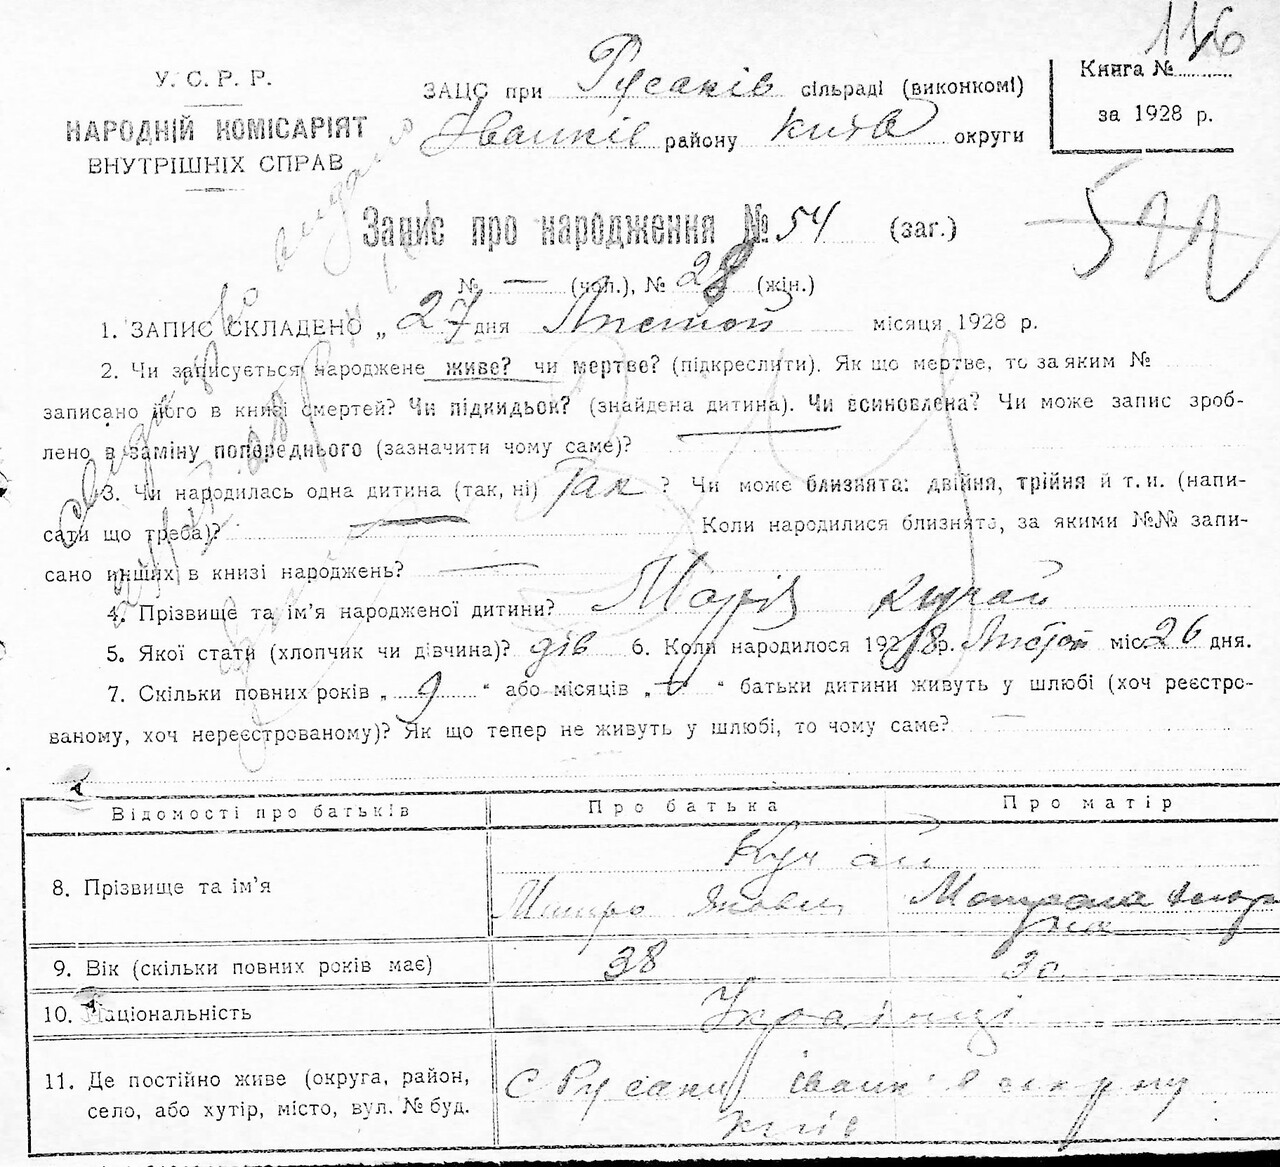 116
У. С. Р. Р.
НАРОДНІЙ КОМІСАРІЯТ
ВНУТРІШНІХ СПРАВ
ЗАЦС при Русаків сільраді (виконкомі)
Іванків району Київ округи
Книга №
за 1928 р.
Запис про народження № 54 (заг.)
№ — (чол.), № 28 (жін.)
1. ЗАПИС СКЛАДЕНО „ 27 дня Листоп місяця 1928 р.
2. Чи записується народжене живе? чи мертве? (підкреслити). Як що мертве, то за яким №
записано його в книзі смертей? Чи підкидьок? (знайдена дитина). Чи всиновлена? Чи може запис зроб-
лено в заміну попереднього (зазначити чому саме)?
3. Чи народилась одна дитина (так, ні) Так ? Чи може близнята: двійня, трійня й т. и. (напи-
сати що треба)? — Коли народилися близнята, за якими №№ запи-
сано инших в книзі народжень? —
4. Прізвище та ім'я народженої дитини? Марія Кучай
5. Якої стати (хлопчик чи дівчина)? дів 6. Коли народилося 1928 р. Листоп міс. 26 дня.
7. Скільки повних років „ 9 “ або місяців „ “ батьки дитини живуть у шлюбі (хоч реєстро-
ваному, хоч нереєстрованому)? Як що тепер не живуть у шлюбі, то чому саме? —
Відомості про батьків Про батька Про матір
Кучай
8. Прізвище та ім'я
9. Вік (скільки повних років має) 38 30
10. Національність Українці
11. Де постійно живе (округа, район, с Русаки
село, або хутір, місто, вул. № буд. Київ